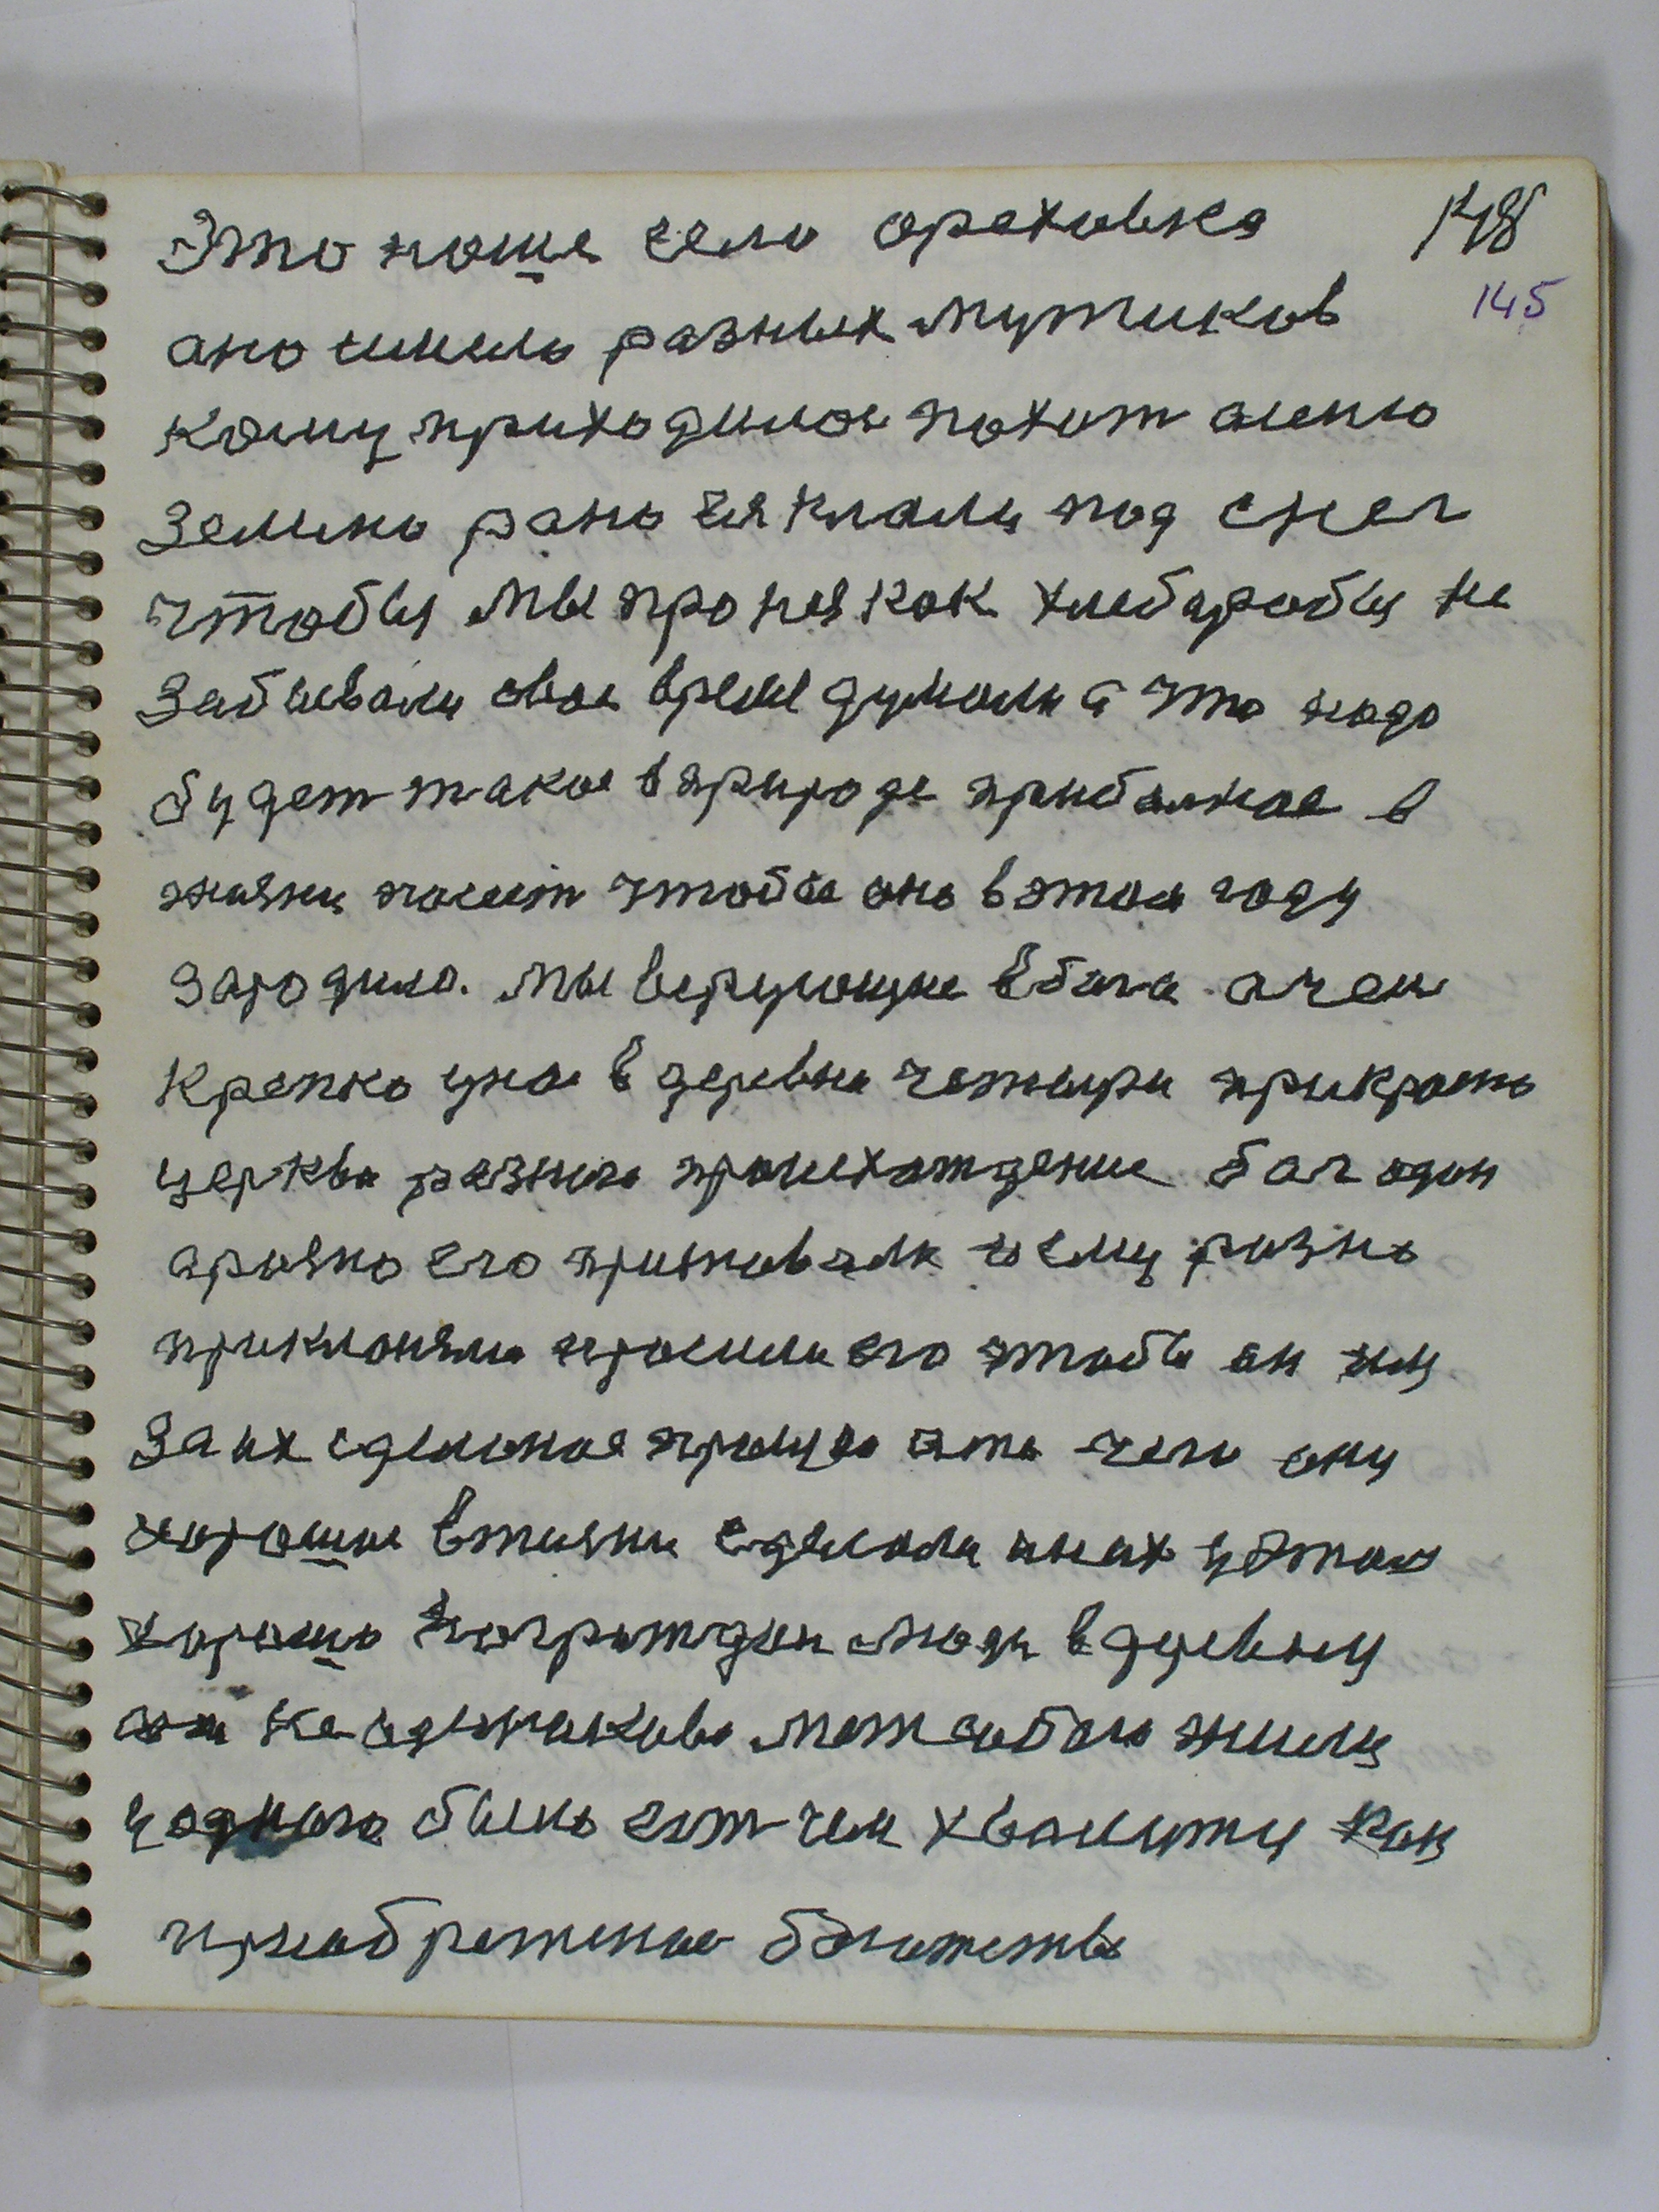 Это наше село ореховка 148
145
ано имело разных мужиков
кому приходилося пахат асеню
землю рано ия клали под снег
чтобы мы про нея как хлебаробы не
забывали свое время думали а что надо
будет такое в природе прибалное в
жизни может чтобы оно в этом году
зародило. мы верующие в бога ачен
крепко унас в деревни четыри прикрасно
церкви разного происхождение бог один
аразно его признавали ему разно
приклоняли просили его чтобы он им
за их сделаное простил это чего они
хорошое в жизни сделали ани их
хорошо люди в деревни
не одинаково меж собою жили
у одного было ест чем хвалитца как
приобретеное богатство